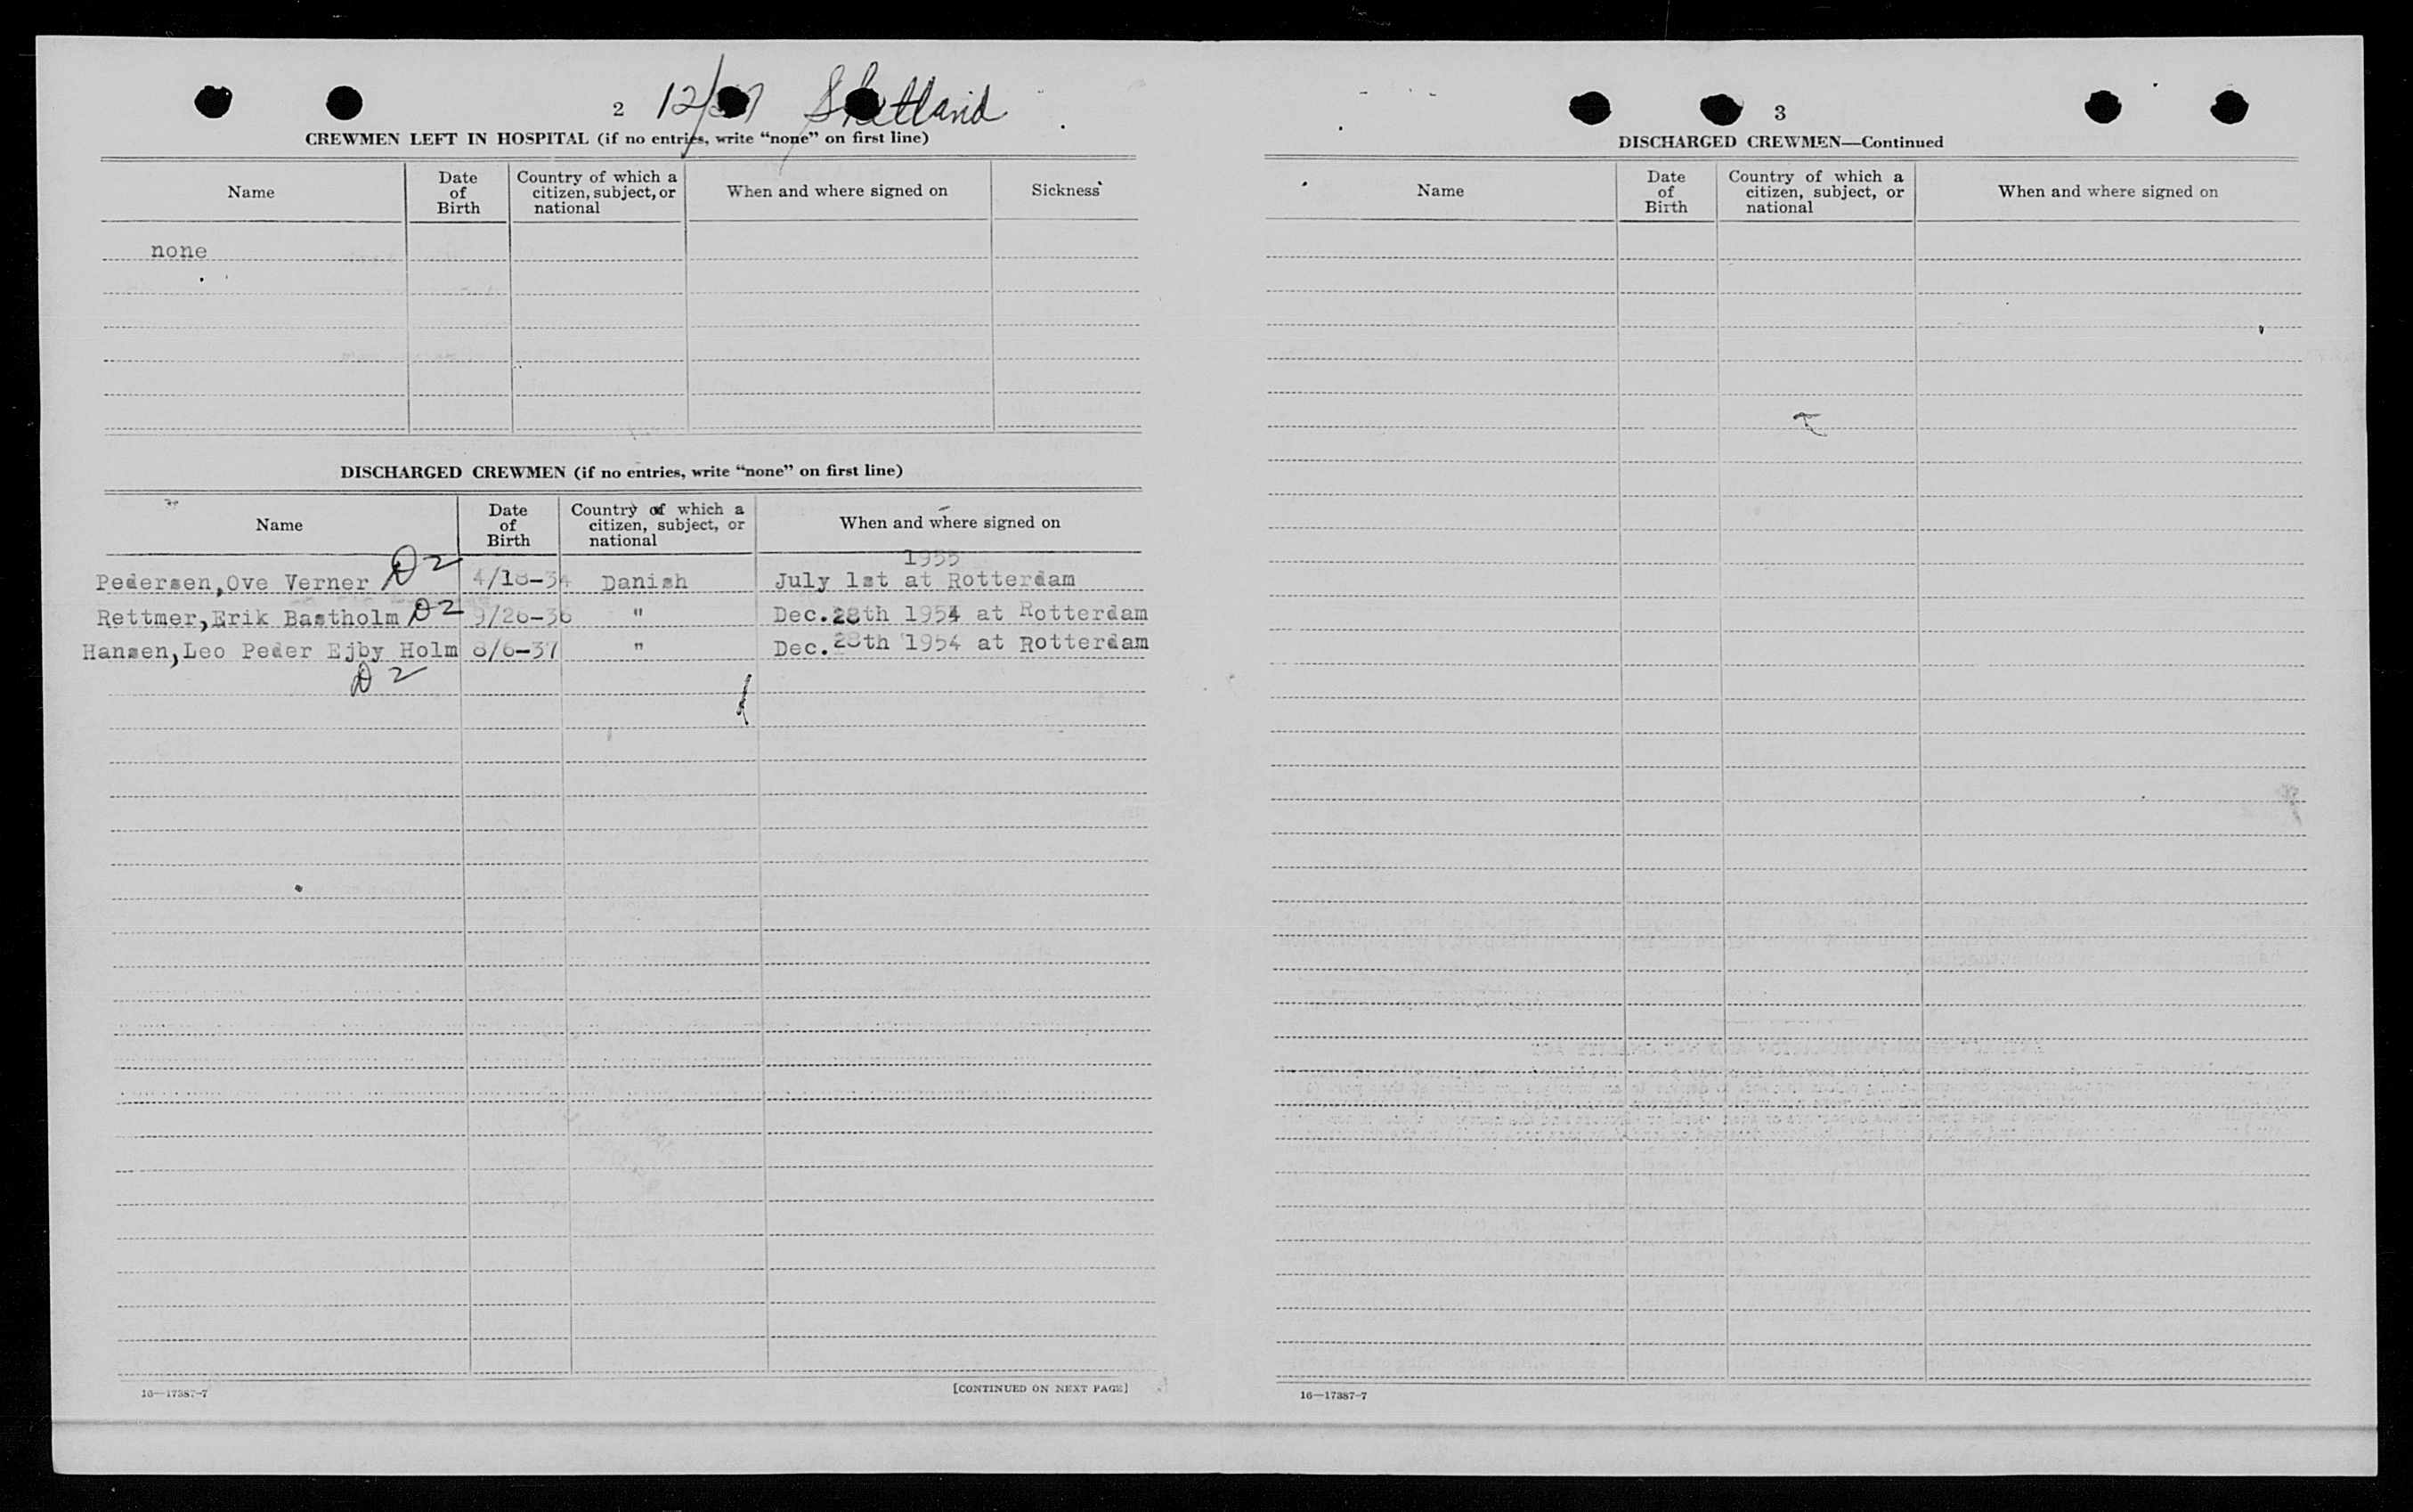 2 12/ Shetland
CREWMEN LEFT IN HOSPITAL (if no entries, write “none” on first line)
Name Date of Birth Country of which a citizen, subject, or national When and where signed on Sickness
none
DISCHARGED CREWMEN (if no entries, write “none” on first line)
Name Date of Birth Country of which a citizen, subject, or national When and where signed on
1955
Pedersen,Ove Verner D2 4/18-34 Danish July 1st at Rotterdam
Rettmer,Erik Bastholm D2 9/26-36 " Dec.28th 1954 at Rotterdam
Hansen,Leo Peder Ejby Holm 8/6-37 " Dec.28th 1954 at Rotterdam
D2
16—17387-7 [CONTINUED ON NEXT PAGE]
3
DISCHARGED CREWMEN—Continued
Name Date of Birth Country of which a citizen, subject, or national When and where signed on
16—17387-7